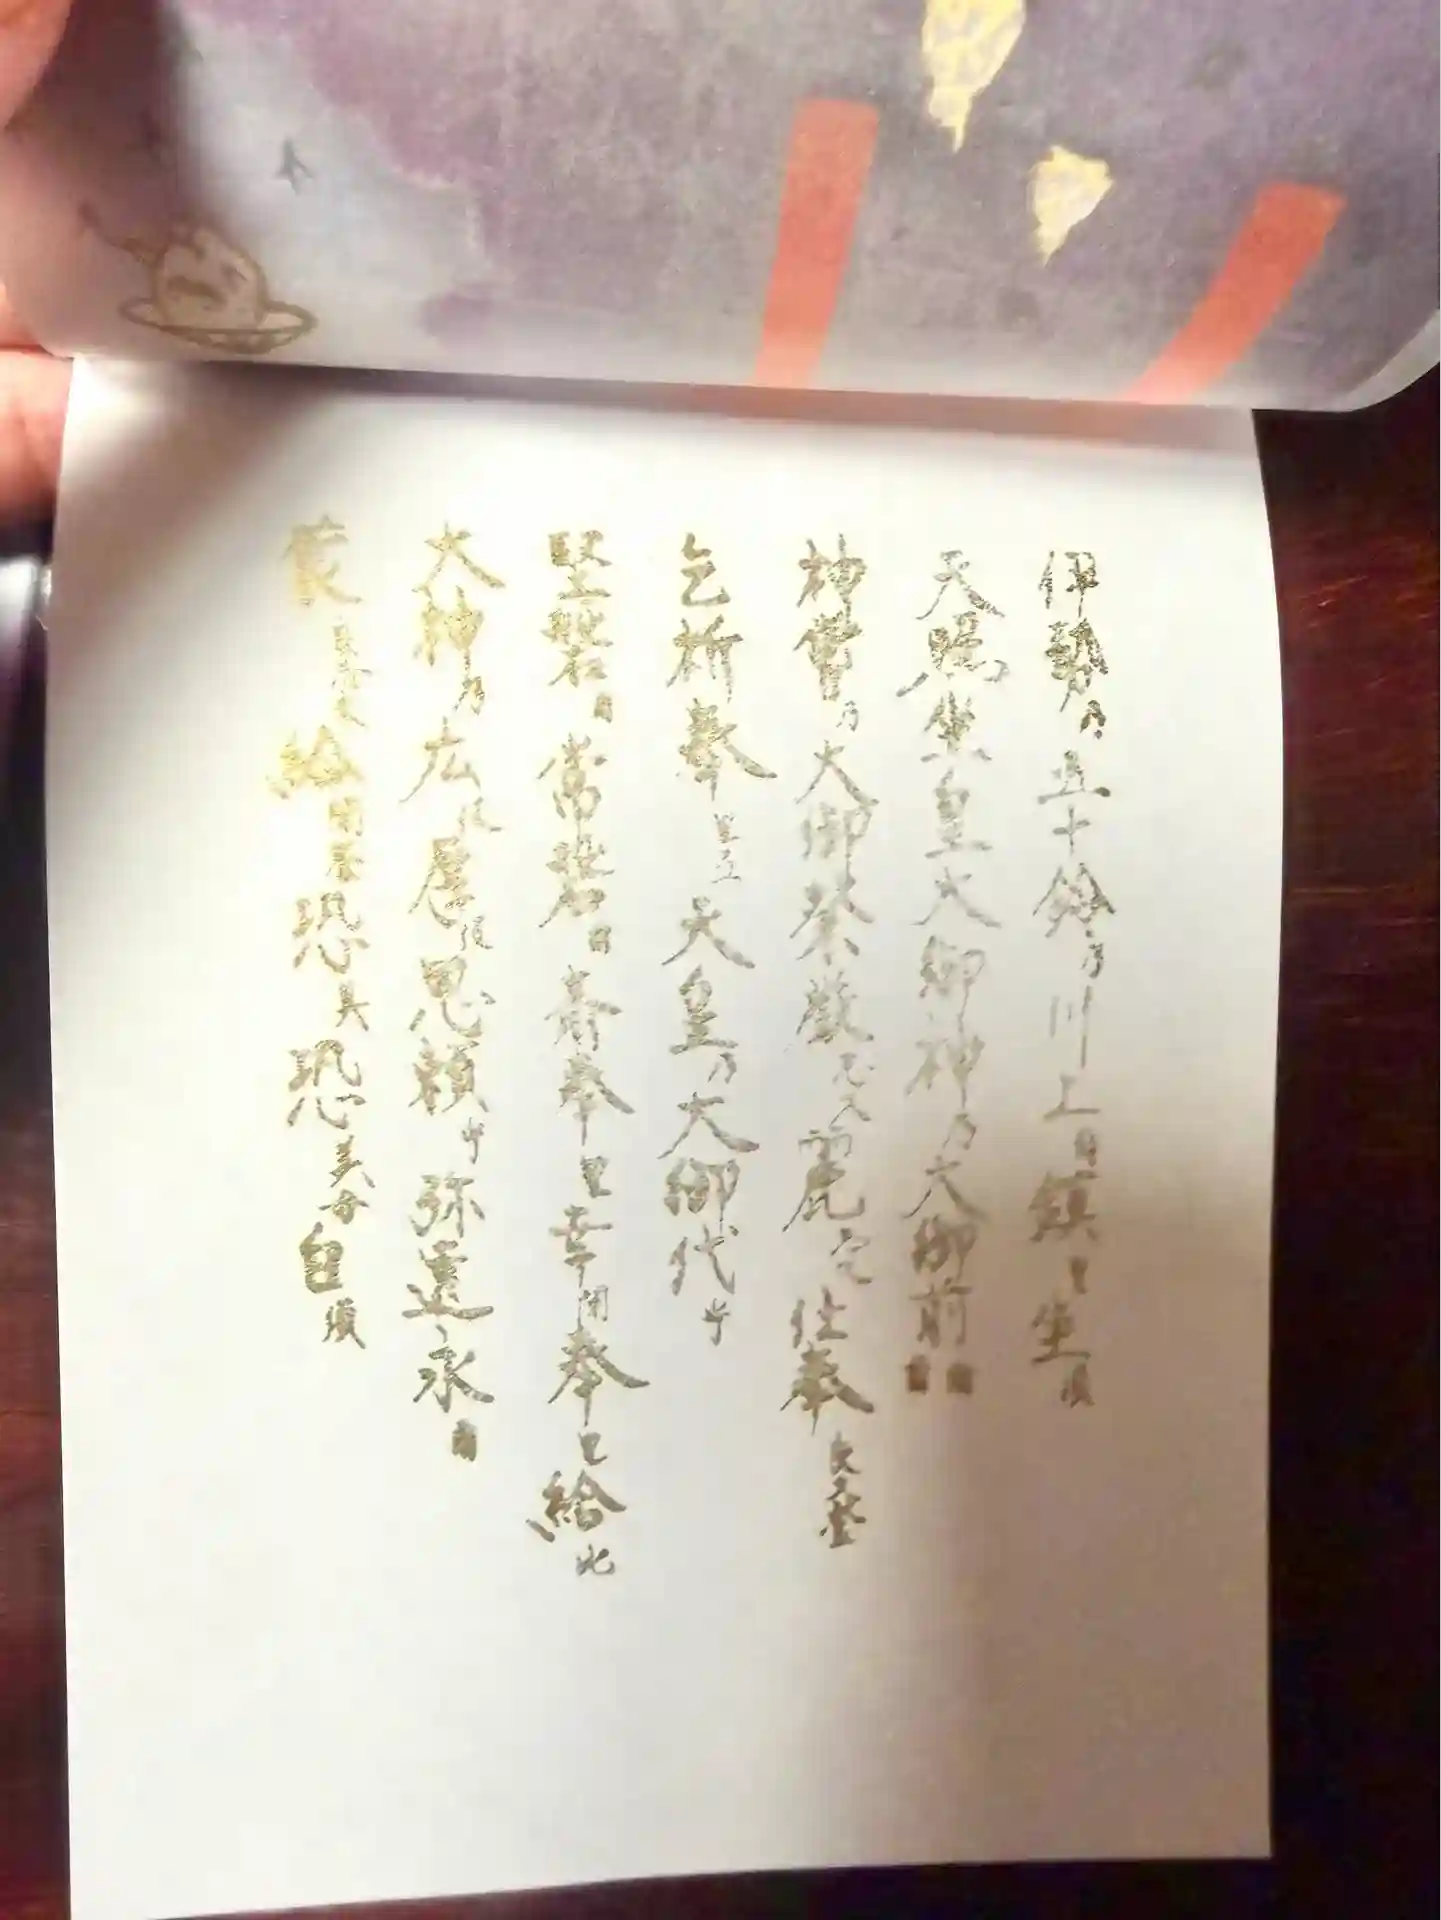 伊勢乃五十鈴乃川上爾鎮里坐須
天照坐皇大御神乃大御前爾
神嘗乃大御祭厳志久麗志久仕奉良登
乞祈奉里弖天皇乃大御代乎
堅磐爾常磐爾斎奉里幸閉奉里給比
大神乃広伎厚伎恩頼乎弥遠永爾
蒙良志米給閉登恐美恐美母白須